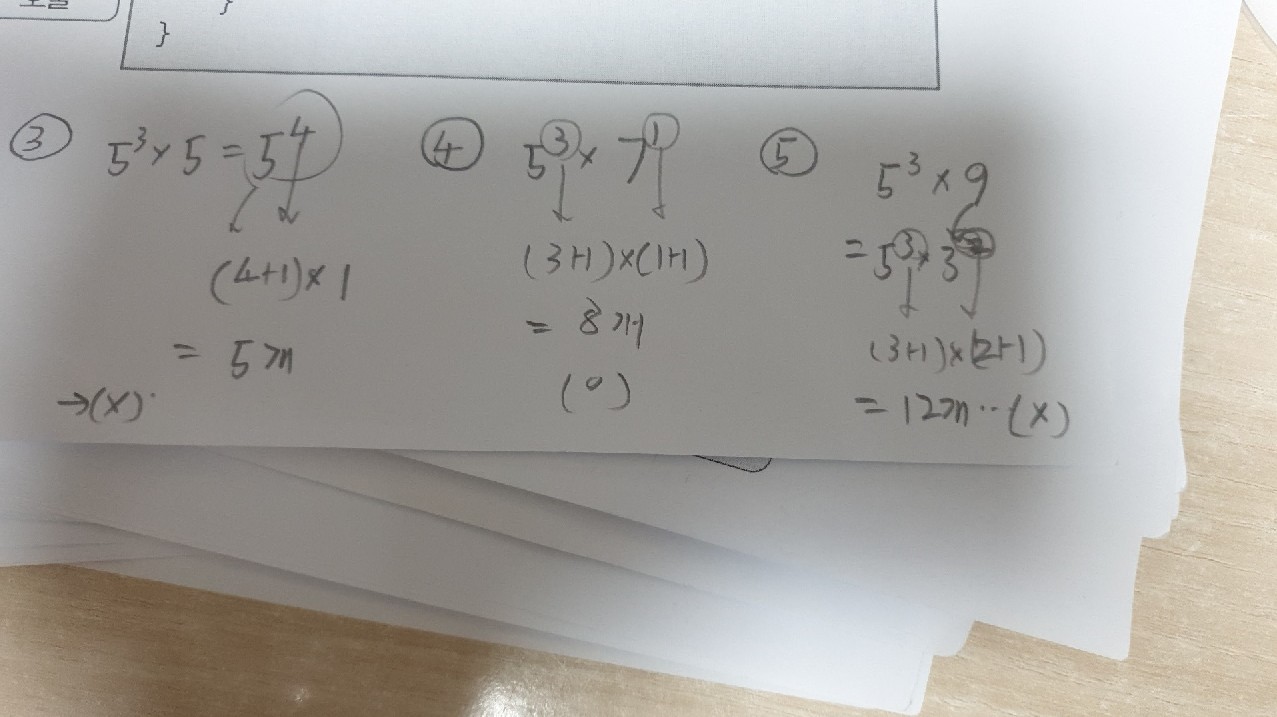 }
}
③ 5³×5 = 5⁴
(4+1)×1
= 5개
→(X)
④ 5³ × 7¹
(3+1)×(1+1)
= 8개
(o)
⑤ 5³ × 9
= 5³×3
(3+1)×(2+1)
= 12개··(X)